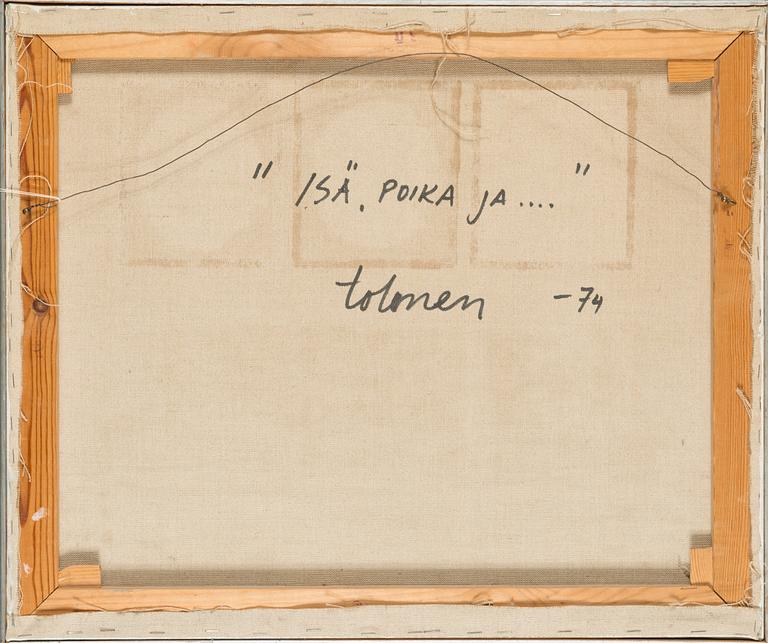 " ISÄ, POIKA JA .... "
tolonen -74